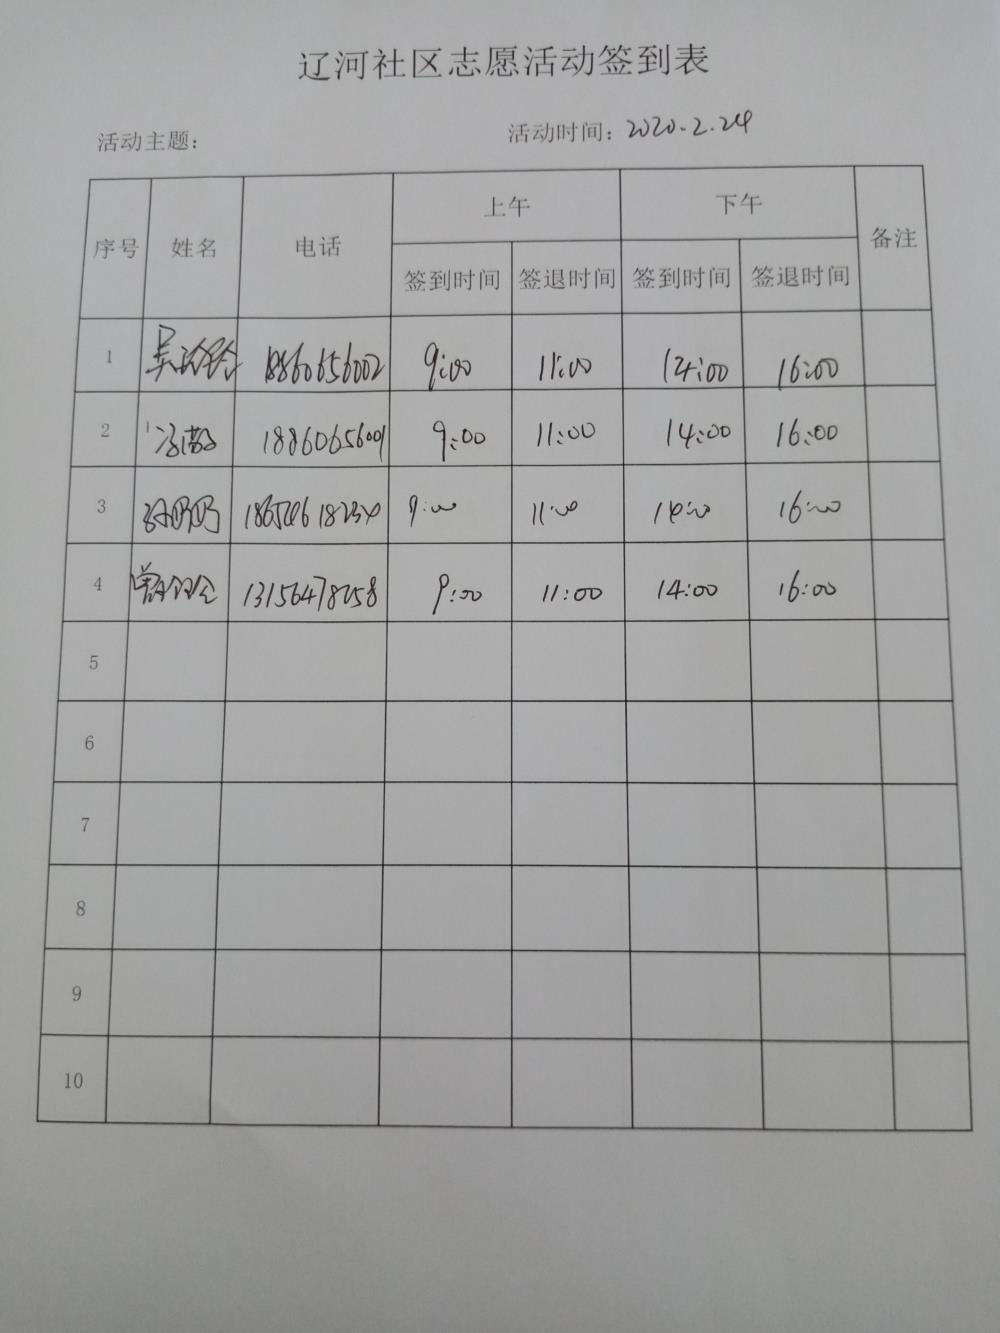 辽河社区志愿活动签到表
活动主题： 活动时间：2020.2.24
序号 姓名 电话 上午 下午 备注
签到时间 签退时间 签到时间 签退时间
1 18860656002 9:00 11:00 14:00 16:00
2 18860656001 9:00 11:00 14:00 16:00
3 9:00 11:00 14:00 16:00
4 13156478258 9:00 11:00 14:00 16:00
5
6
7
8
9
10